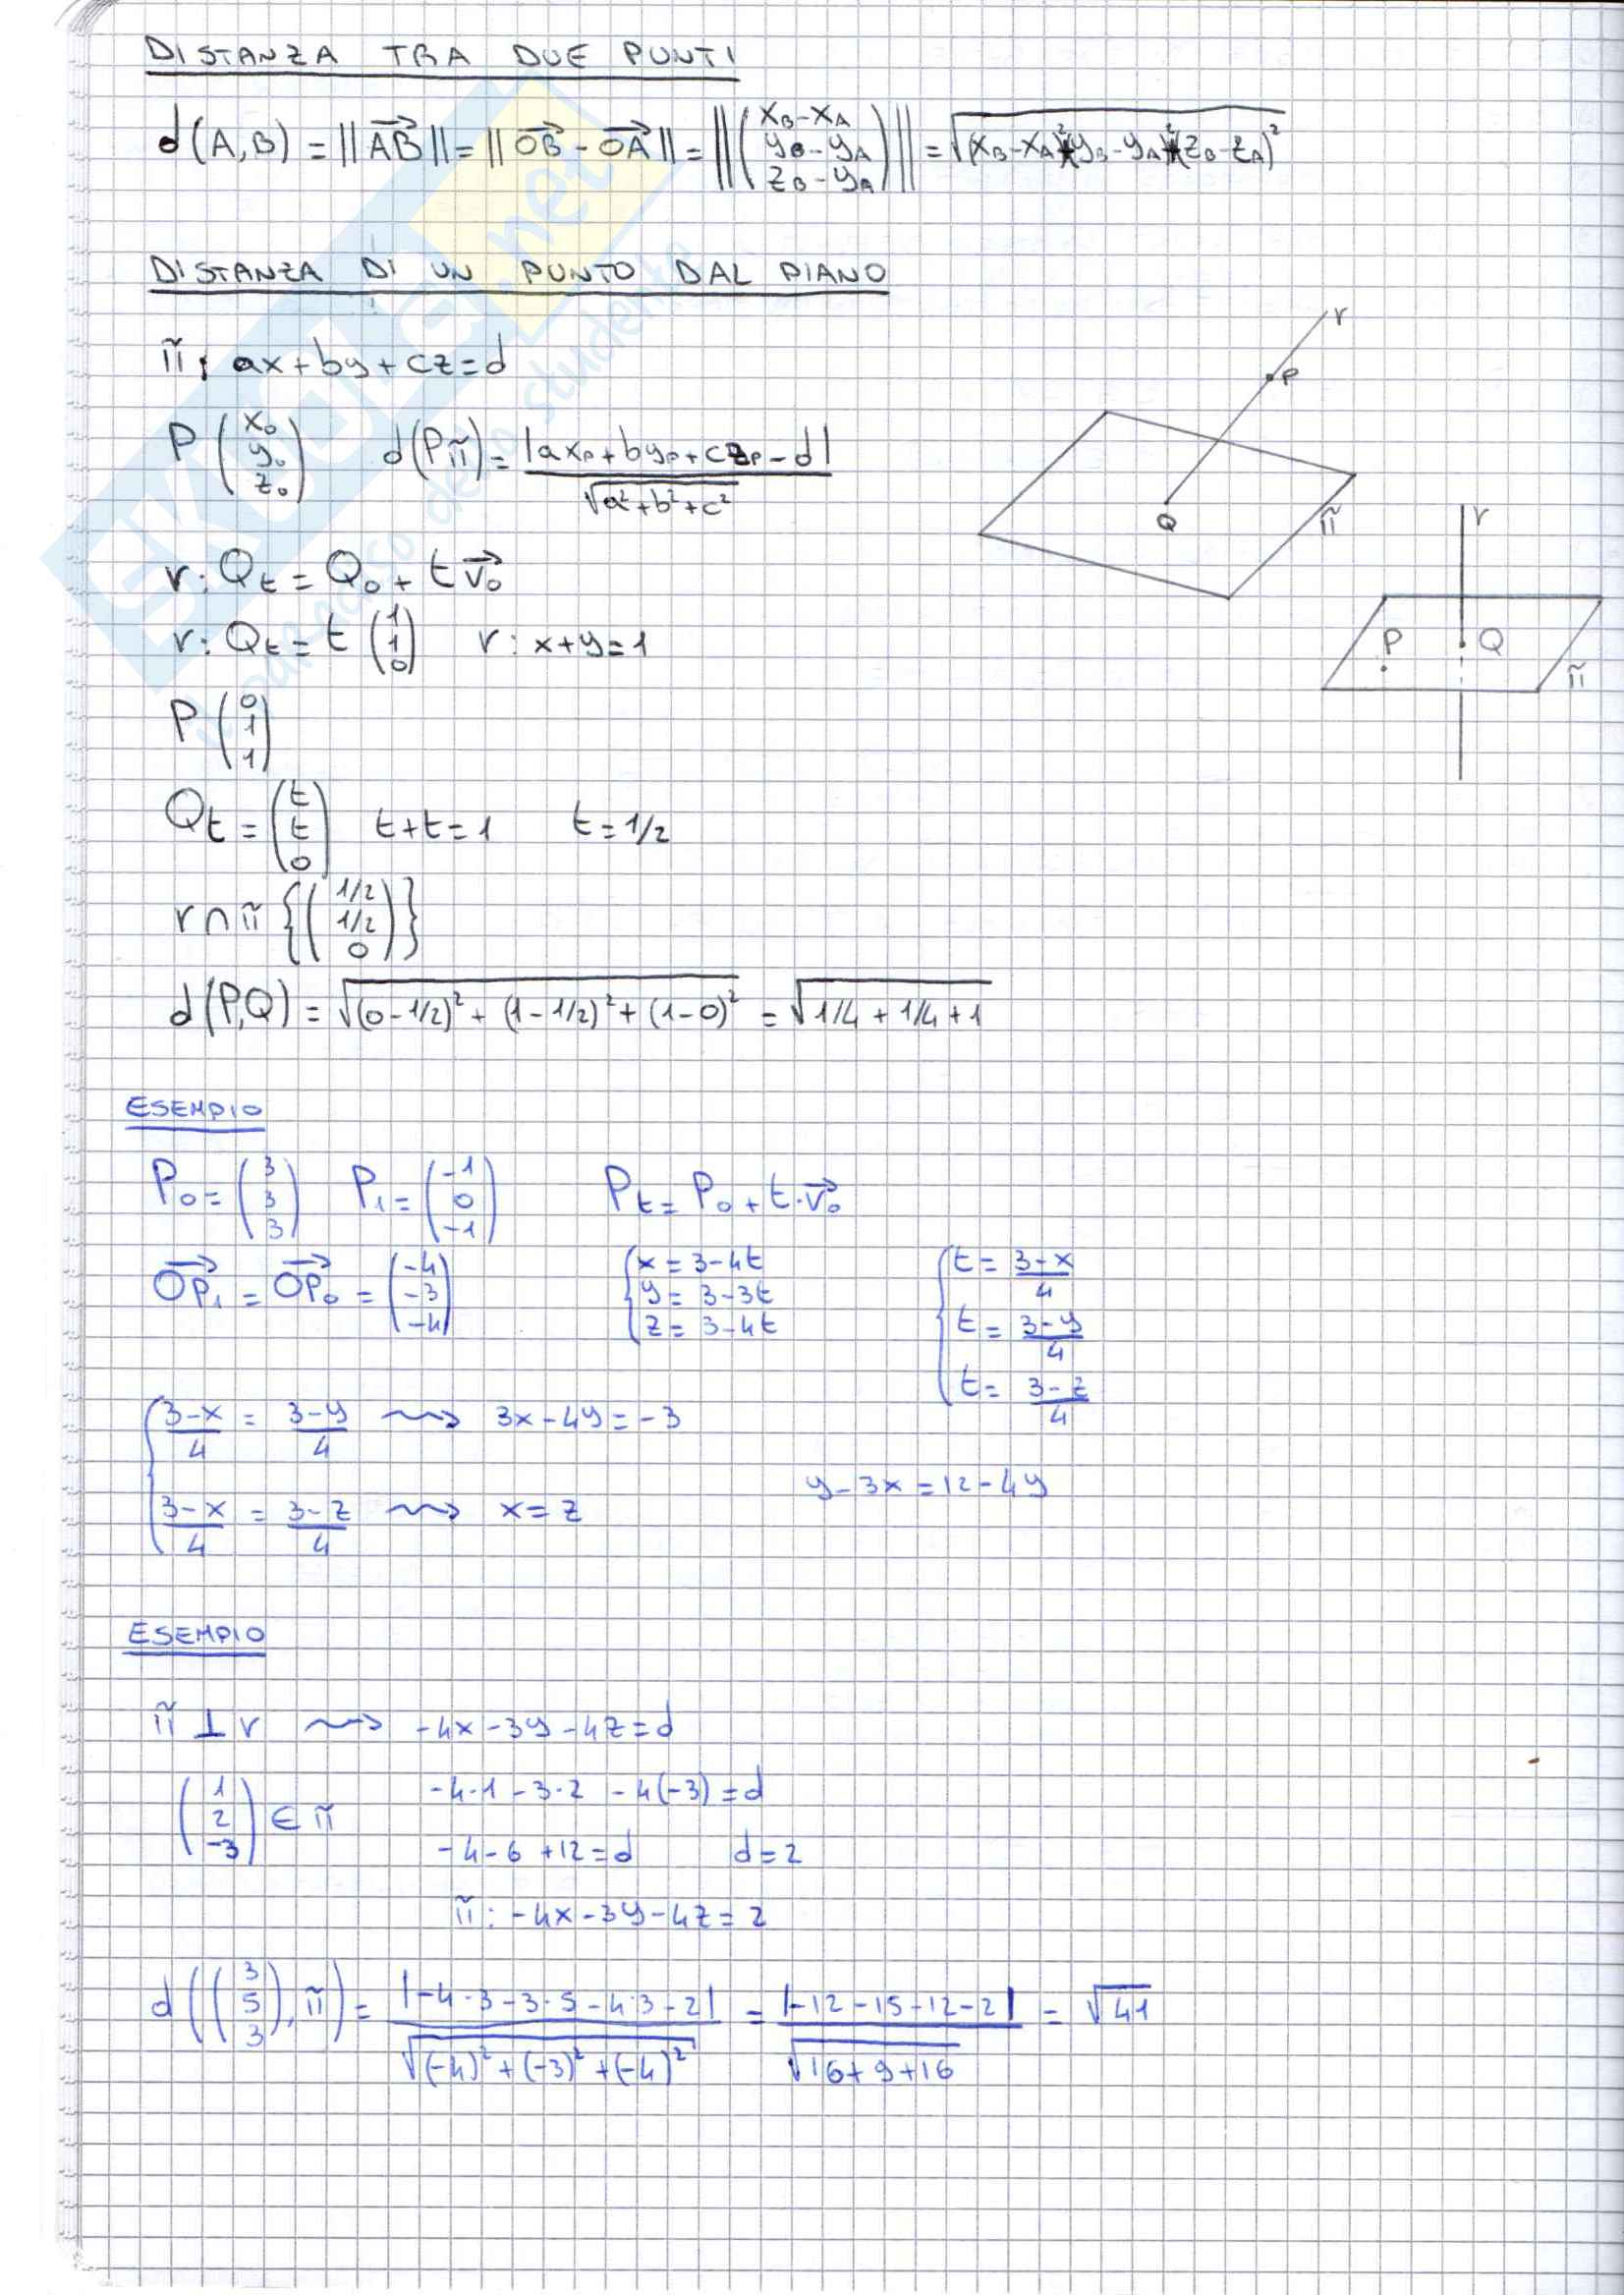 DISTANZA TRA DUE PUNTI
d(A,B) = ||AB→|| = ||OB→ - OA→|| = ||(xB-xA yB-yA zB-yA)|| = √(xB-xA)²+(yB-yA)²+(zB-zA)²
DISTANZA DI UN PUNTO DAL PIANO
π: ax+by+cz=d
P (x₀ y₀ z₀) d(Pπ) = |axP+byP+czP-d| / √a²+b²+c²
r: Qt = Q₀ + t v₀→
r: Qt = t (1 1 0) r: x+y=1
P (0 1 1)
Qt = (t t 0) t+t=1 t=1/2
r∩π {(1/2 1/2 0)}
d(P,Q) = √(0-1/2)² + (1-1/2)² + (1-0)² = √1/4 + 1/4 + 1
r
P
Q
π
r
P
Q
π
ESEMPIO
P₀ = (3 3 3) P₁ = (-1 0 -1) Pt = P₀ + t·v₀→
OP₁→ = OP₀→ = (-4 -3 -4) { x = 3-4t y = 3-3t z = 3-4t { t = 3-x/4 t = 3-y/4 t = 3-z/4
{ 3-x/4 = 3-y/4 ⇝ 3x-4y=-3
y-3x=12-4y
3-x/4 = 3-z/4 ⇝ x=z
ESEMPIO
π⊥r ⇝ -4x-3y-4z=d
(1 2 -3) ∈ π -4·1 -3·2 -4(-3) = d
-4-6+12=d d=2
π: -4x-3y-4z=2
d((3 5 3), π) = |-4·3-3·5-4·3-2| / √(-4)²+(-3)²+(-4)² = |-12-15-12-2| / √16+9+16 = √41
SKUOLA.net